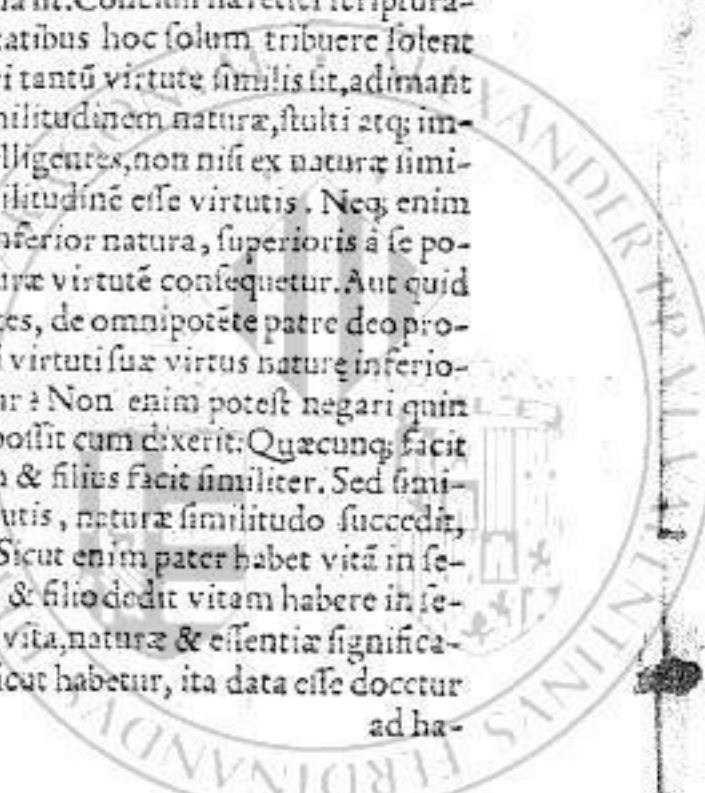 hæretici scriptura-
tatibus hoc ſolum tribuere ſolent
ri tantũ virtute ſimilis ſit, adimant
militudinem naturæ, ſtulti atq; im-
lligentes, non niſi ex naturæ ſimi-
ilitudinẽ eſſe virtutis. Neq; enim
nferior natura, ſuperioris à ſe po-
uræ virtutẽ conſequetur. Aut quid
tes, de omnipotẽte patre deo pro-
i virtuti ſuæ virtus naturę inferio-
ur? Non enim poteſt negari quin
poſſit cum dixerit: Quæcunq; facit
n & filius facit ſimiliter. Sed ſimi-
utis, naturæ ſimilitudo ſuccedit,
Sicut enim pater habet vitã in ſe-
& filio dedit vitam habere in ſe-
vita, naturæ & eſſentiæ ſignifica-
icut habetur, ita data eſſe docetur
ad ha-
ALEXANDER PP VI VALENTINUS FERDINANDUS